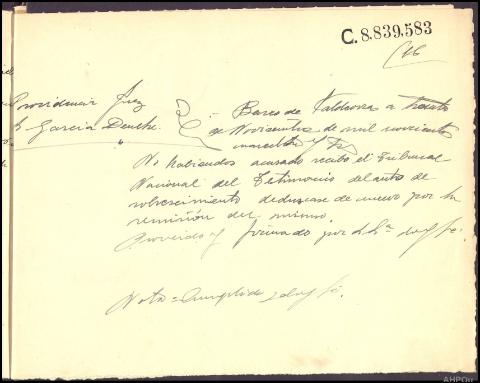 C.8.839.583
Providencia Juez
Sr García
Barco de Valdeorras a treinta
de Noviembre de mil novecientos
cuarenta y
No habiendo acusado recibo el Tribunal
Nacional del Testimonio del auto de
sobreseimiento dedúzcase de nuevo por la
remisión del mismo.
Proveido y firmado por S.Sª doy fe.
Nota = Cumplido doy fé.
AHPOu